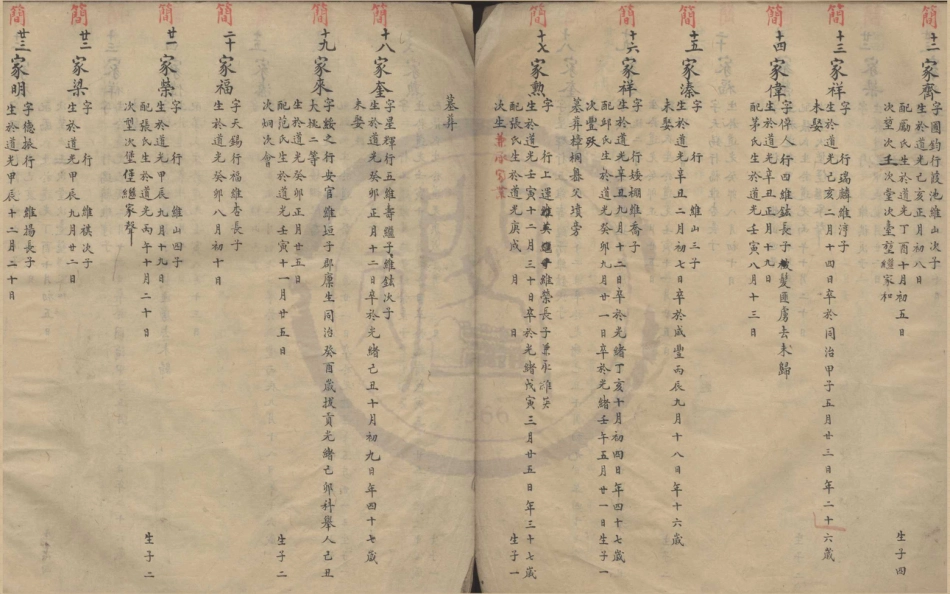 簡
十二 家齊
字園鈞行菠池維山次子
生於道光己亥正月初八日
配勵氏生於道光丁酉十月初五日
次塋次王次堂次臺塋繼家和
生子四
簡
十三 家祥
字 行瑞麟維濤子
生於道光己亥二月十四日卒於同治甲子五月廿三日年二十六歲
未娶
簡
十四 家偉
字倬人行四維鋐長子被髮匪虜去未歸
生於道光辛丑正月十九日
配茅氏生於道光壬寅八月十三日
簡
十五 家溱
字 行 維山三子
生於道光辛丑二月初七日卒於咸豐丙辰九月十八日年十六歲
未娶
簡
十六 家祥
字 行矮棚維喬子
生於道光辛丑九月十二日卒於光緒丁亥十月初四日年四十七歲
配邱氏生於道光癸卯九月廿一日卒於光緒壬午五月廿一日生子一
次豐 歿
墓葬樟桐嶴父墳旁
簡
十七 家勲
字 行上運維榮長子兼承維英
生於道光壬寅十二月三十日卒於光緒戊寅三月廿五日年三十七歲
配張氏生於道光庚戌 月 日
次生 兼承家業
生子一
墓葬
簡
十八 家奎
字星輝行五維壽繼子維鋐次子
生於道光癸卯正月十二日卒於光緒己丑十月初九日年四十七歲
未娶
簡
十九 家來
字綏之行安官維垣子郡廩生同治癸酉歲拔貢光緒己卯科舉人己丑
大挑二等
生於道光癸卯正月廿五日
配范氏生於道光壬寅十一月廿五日
次炯次會
生子二
簡
二十 家福
字天錫行福維杏長子
生於道光癸卯八月初十日
簡
廿一 家榮
字 行 維山四子
生於道光甲辰九月初九日
配張氏生於道光丙午十月二十日
次型次堡堡繼家聲
生子二
簡
廿二 家梁
字 行 維祺次子
生於道光甲辰九月廿二日
簡
廿三 家明
字德振行 維揚長子
生於道光甲辰十二月二十日